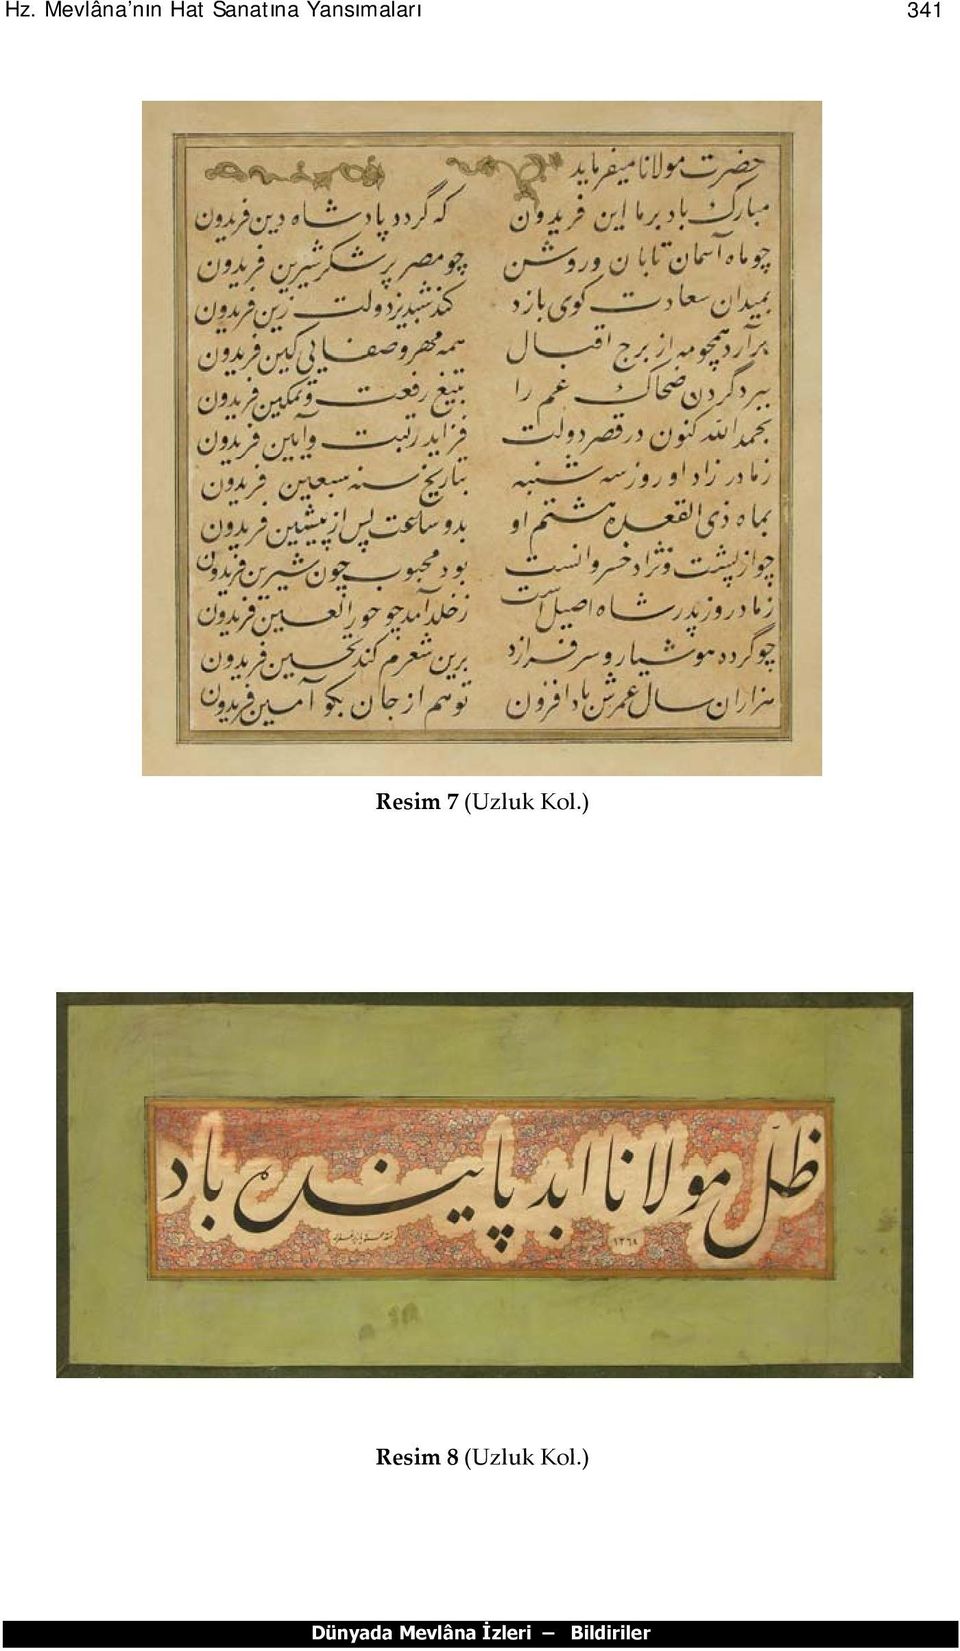 Hz. Mevlâna'nın Hat Sanatına Yansımaları 341
حضرت مولانا میفرماید
مبارک باد بر ما این فریدون که گردد پادشاه دین فریدون
چو ماه آسمان تابان و روشن چو مصر پر شکر شیرین فریدون
بمیدان سعادت کوی بازد کند شبدیز دولت زین فریدون
برآرد همچو مه از برج اقبال همه مهر و صفا بی کین فریدون
ببرد گردن ضحاک غم را بتیغ رفعت و تمکین فریدون
بحمدالله کنون در قصر دولت فزاید رتبت و آیین فریدون
ز مادر زاد او روز سه شنبه بتاریخ سنه سبعین فریدون
بماه ذی القعده هشتم او بدو ساعت پس از پیشین فریدون
چو از پشت و نژاد خسروانست بود محبوب چون شیرین فریدون
ز مادر وز پدر شاه اصیل است ز خلد آمد چو حور العین فریدون
چو گردد هوشیار و سرفرازد برین شعرم کند تحسین فریدون
هزاران سال عمرش باد افزون تو هم از جان بکو آمین فریدون
Resim 7 (Uzluk Kol.)
ظلّ مولانا ابد پاینده باد
Resim 8 (Uzluk Kol.)
Dünyada Mevlâna İzleri – Bildiriler